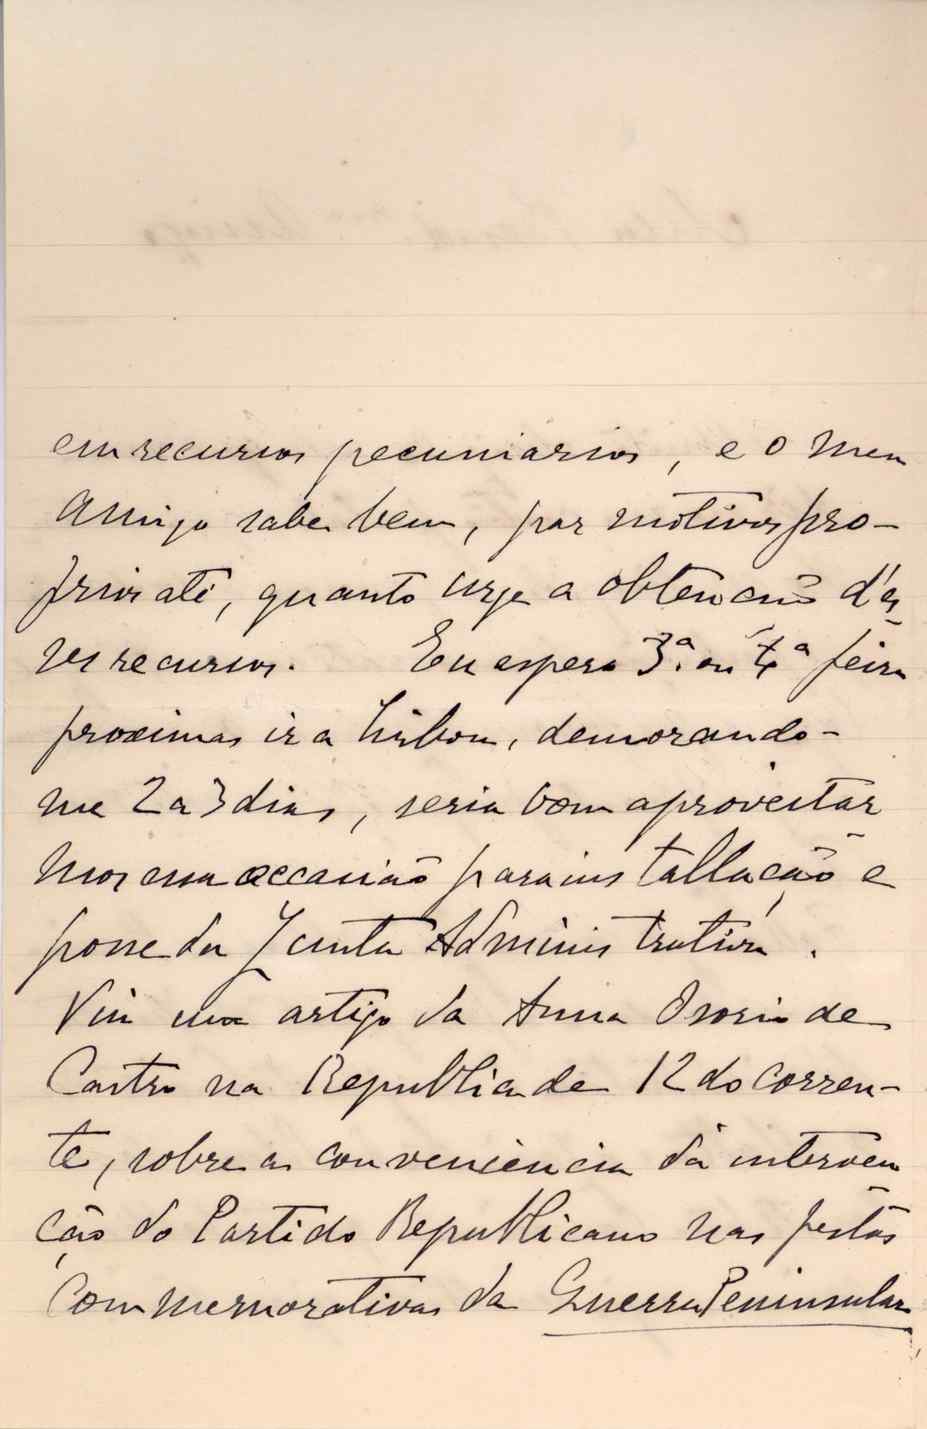 em recursos pecuniarios, e o meu
amigo sabe bem, por motivos pro-
prios até, quanto urge a obtenção d'es
ses recursos. Eu espero 3ª. ou 4ª feira
proximas ir a Lisboa, demorando-
me 2 a 3 dias, seria bom aproveitar
mos essa occasião para installação e
posse da Junta Administrativa.
Vi um artigo da Anna Osorio de
Castro na Republica de 12 do corren-
te, sobre a conveniencia da interven
ção do Partido Republicano nas festas
Commemorativas da Guerra Peninsular,